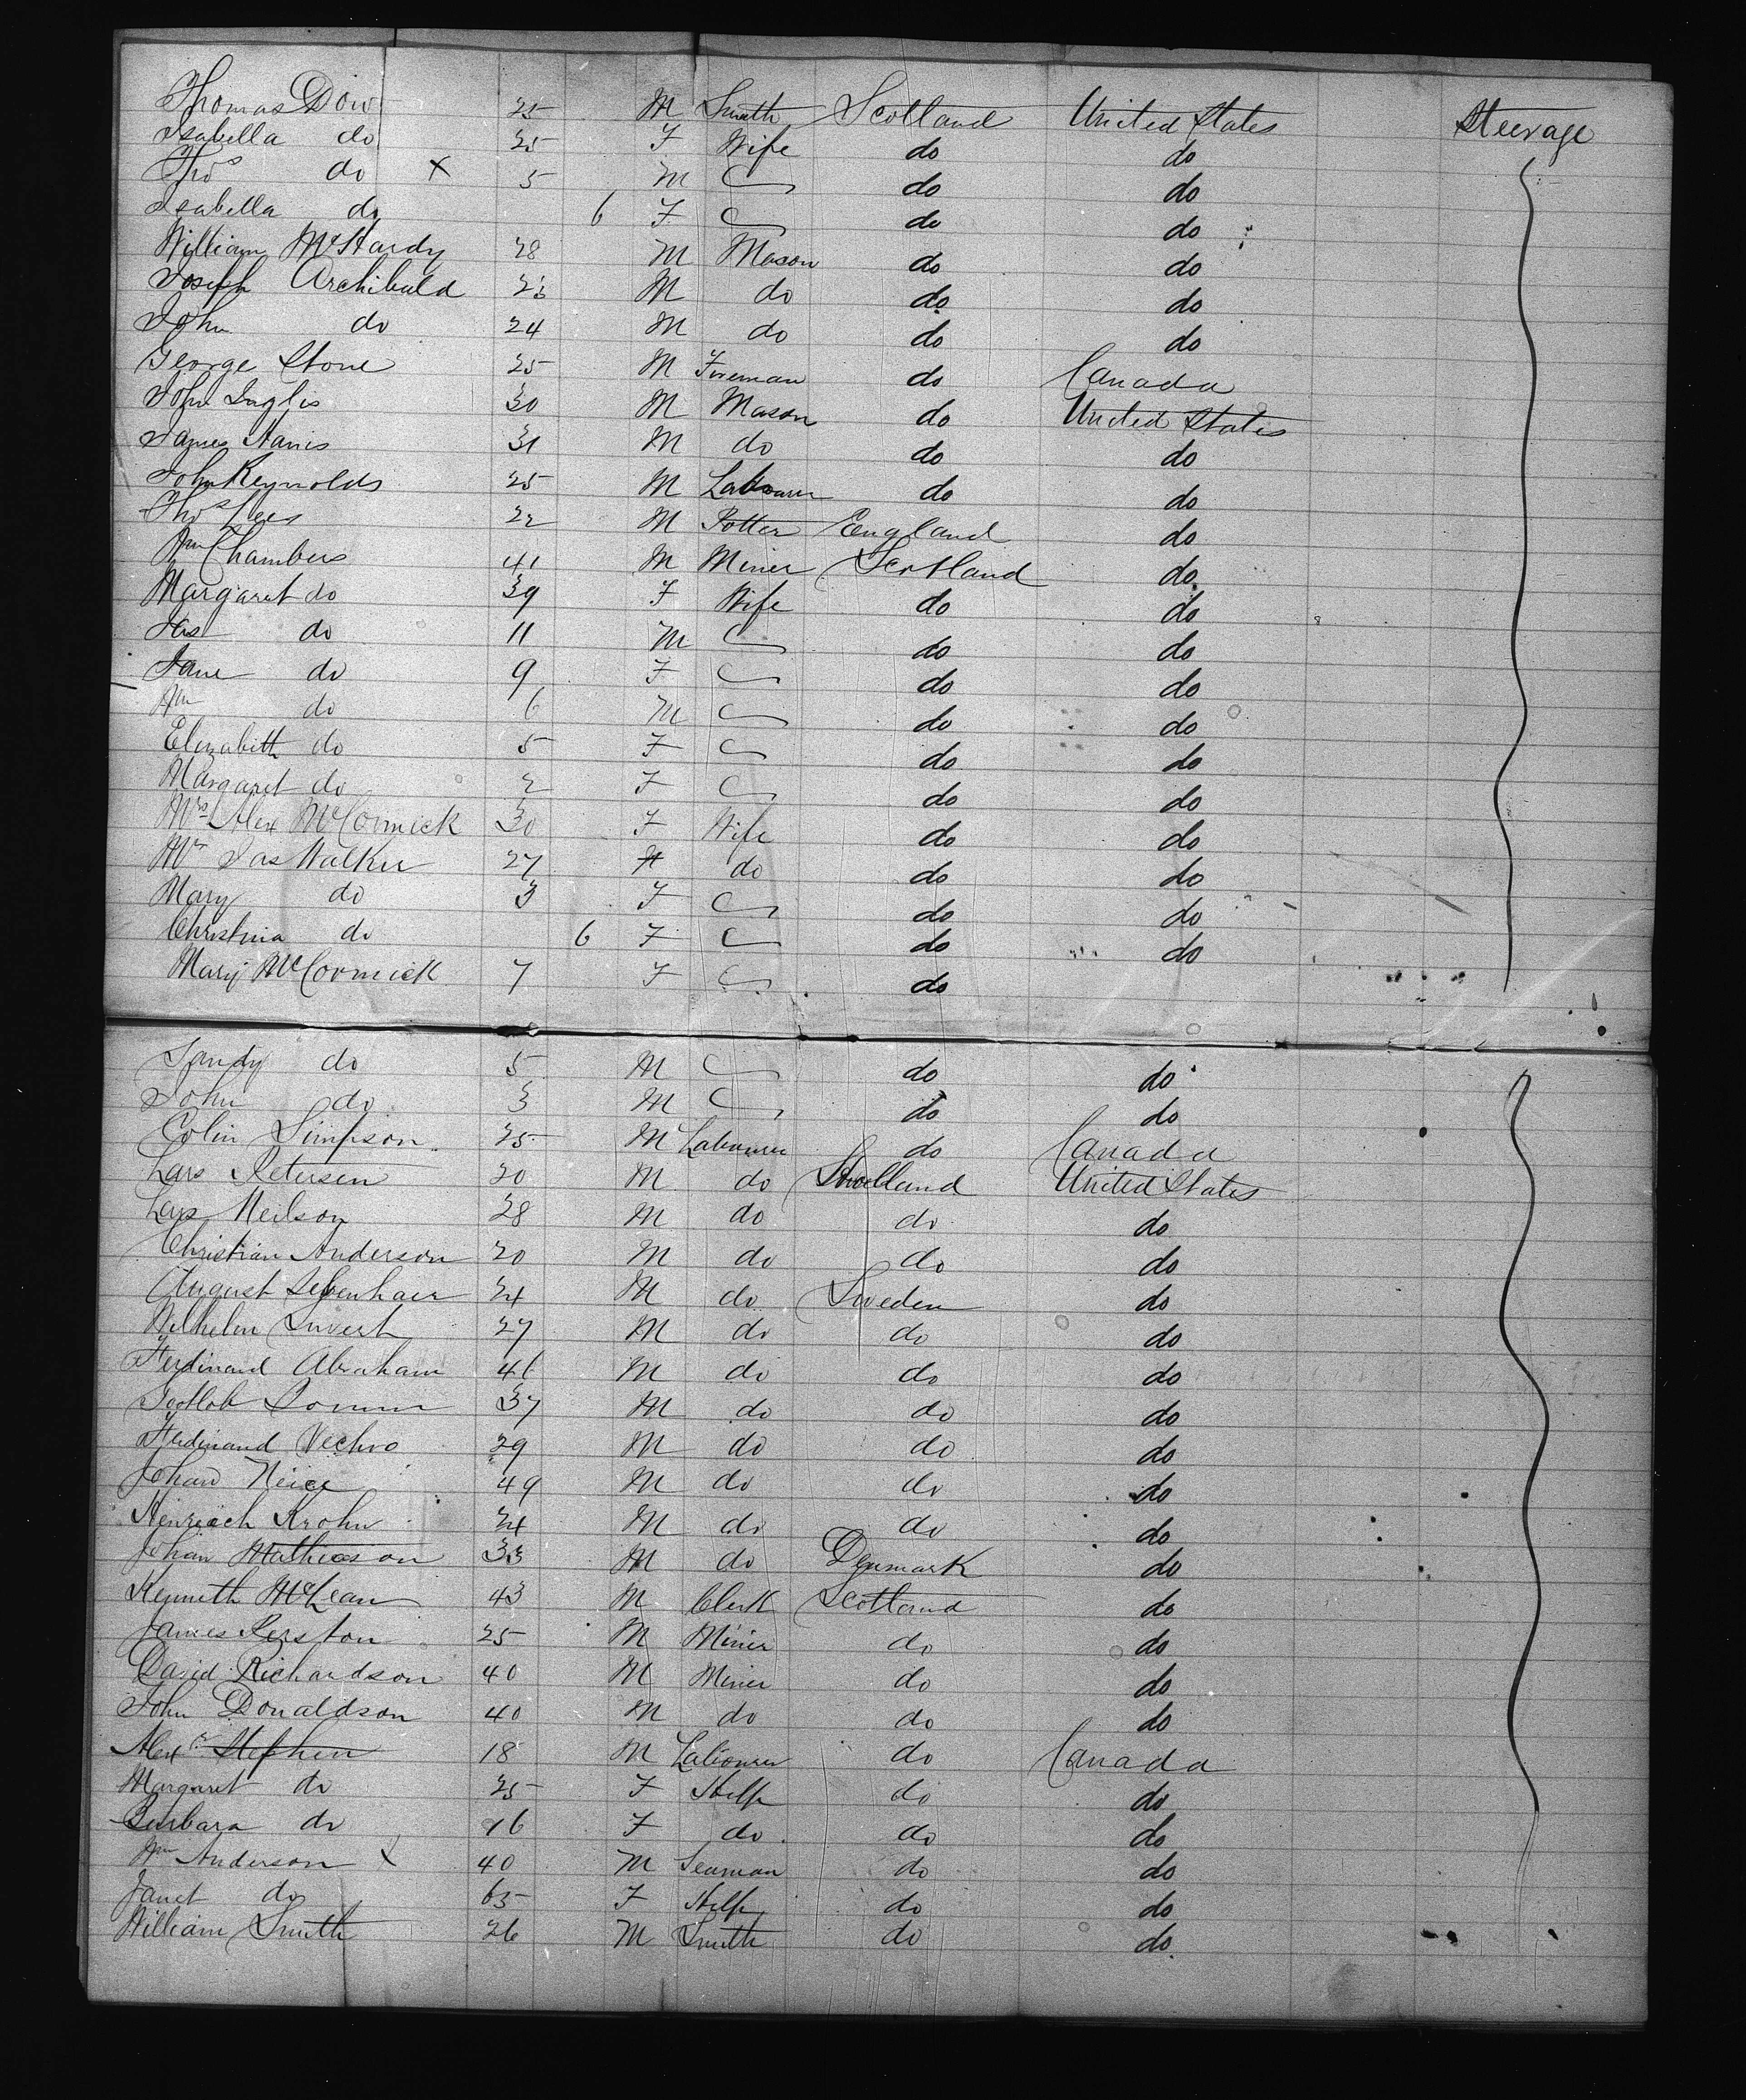 Thomas Dow 25 M Smith Scotland United States Steerage
Isabella do 25 F Wife do do
Thos do X 5 M do do
Isabella do 6 F do do
William McHardy 28 M Mason do do
Joseph Archibald 23 M do do do
John do 24 M do do do
George Stone 25 M Fireman do Canada
John Inglis 30 M Mason do United States
James 31 M do do do
John Reynolds 25 M Labourer do do
Thos Lees 22 M Potter England do
Wm Chambers 41 M Miner Scotland do
Margaret do 39 F Wife do do
Jas do 11 M do do
Jane do 9 F do do
Wm do 6 M do do
Elizabeth do 5 F do do
Margaret do 2 F do do
Mrs Alex McCormick 30 F Wife do do
Mrs Jas Walker 27 F do do do
Mary do 3 F do do
Christina do 6 F do do
Mary McCormick 7 F do
Sandy do 5 M do do
John do 3 M do do
Colin Simpson 25 M Labourer do Canada
Lars Petersen 20 M do United States
Lars Neilson 28 M do do do
Christian Anderson 20 M do do do
August 24 M do Sweden do
Wilhelm 27 M do do do
Ferdinand Abraham 46 M do do do
Gottlob 37 M do do do
Ferdinand 29 M do do do
Johan 49 M do do do
Heinreich Krohn 24 M do do do
Johan Mathieson 33 M do Denmark do
Kenneth McLean 43 M Clerk Scotland do
James Kerston 25 M Miner do do
David Richardson 40 M Miner do do
John Donaldson 40 M do do do
Alexr Stephen 18 M Labourer do Canada
Margaret do 25 F Wife do do
Barbara do 16 F do do do
Wm Anderson X 40 M Seaman do do
Janet do 65 F Wife do do
William Smith 26 M Smith do do